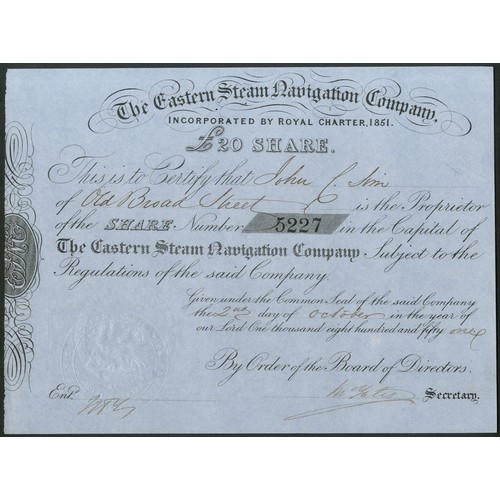 The Eastern Steam Navigation Company.
INCORPORATED BY ROYAL CHARTER, 1851.
£20 SHARE.
This is to Certify that John C. Sim
of Old Broad Street is the Proprietor
of the SHARE Number 5227 in the Capital of
The Eastern Steam Navigation Company. Subject to the
Regulations of the said Company.
Given under the Common Seal of the said Company
the 2nd day of October in the year of
our Lord One thousand eight hundred and fifty one
By Order of the Board of Directors.
Entd. Secretary.